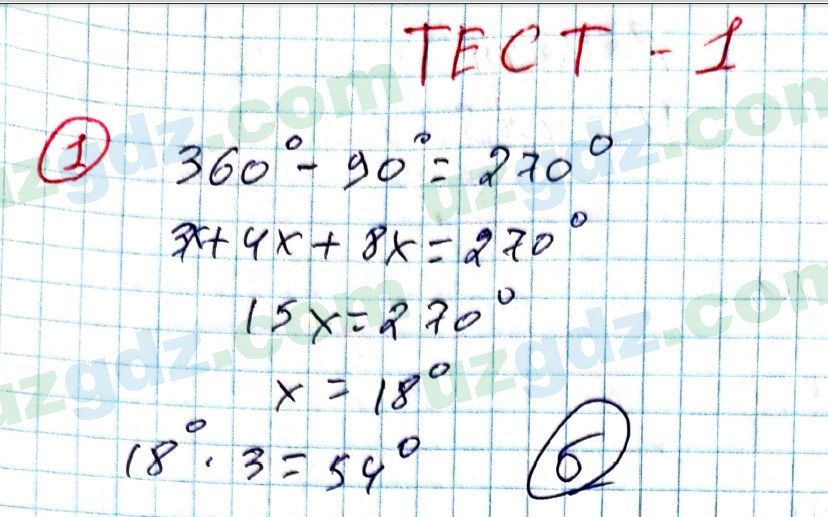 ТЕСТ - 1
1 360° - 90° = 270°
3x + 4x + 8x = 270°
15x = 270°
x = 18°
18° · 3 = 54° Б
uzgdz.com
uzgdz.com
uzgdz.com
uzgdz.com